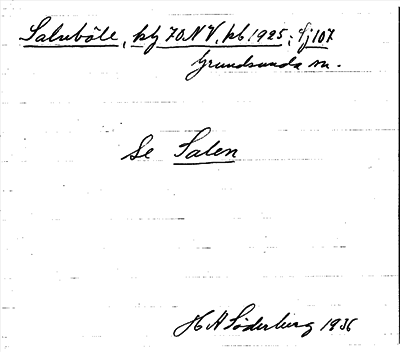 Salubôle, kbj 70NV, kb. 1925; fj 107
Grundsunda sn.
Se Salen
H A Söderberg 1936